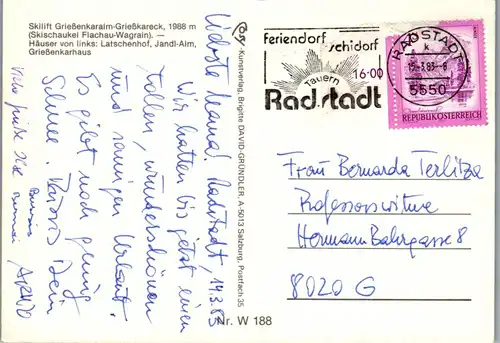 Skilift Grießenkaralm-Grießkareck, 1988 m
(Skischaukel Flachau-Wagrain). —
Häuser von links: Latschenhof, Jandl-Alm,
Grießenkarhaus
Radstadt, 14.3.83
Liebste Mama!
Wir hatten bis jetzt einen
tollen, wunderschönen
und sonnigen Urlaub.
Es gibt noch genug
Schnee. Dein
Viele
Kunstverlag, Brigitte DAVID-GRÜNDLER, A-5013 Salzburg, Postfach 35
Nr. W 188
feriendorf
schidorf
Tauern
16·00
Radstadt
RADSTADT
k
5550
REPUBLIK ÖSTERREICH
Frau Bernarda Terlitza
Professorswitwe
Hermann Bahrgasse 8
8020 G